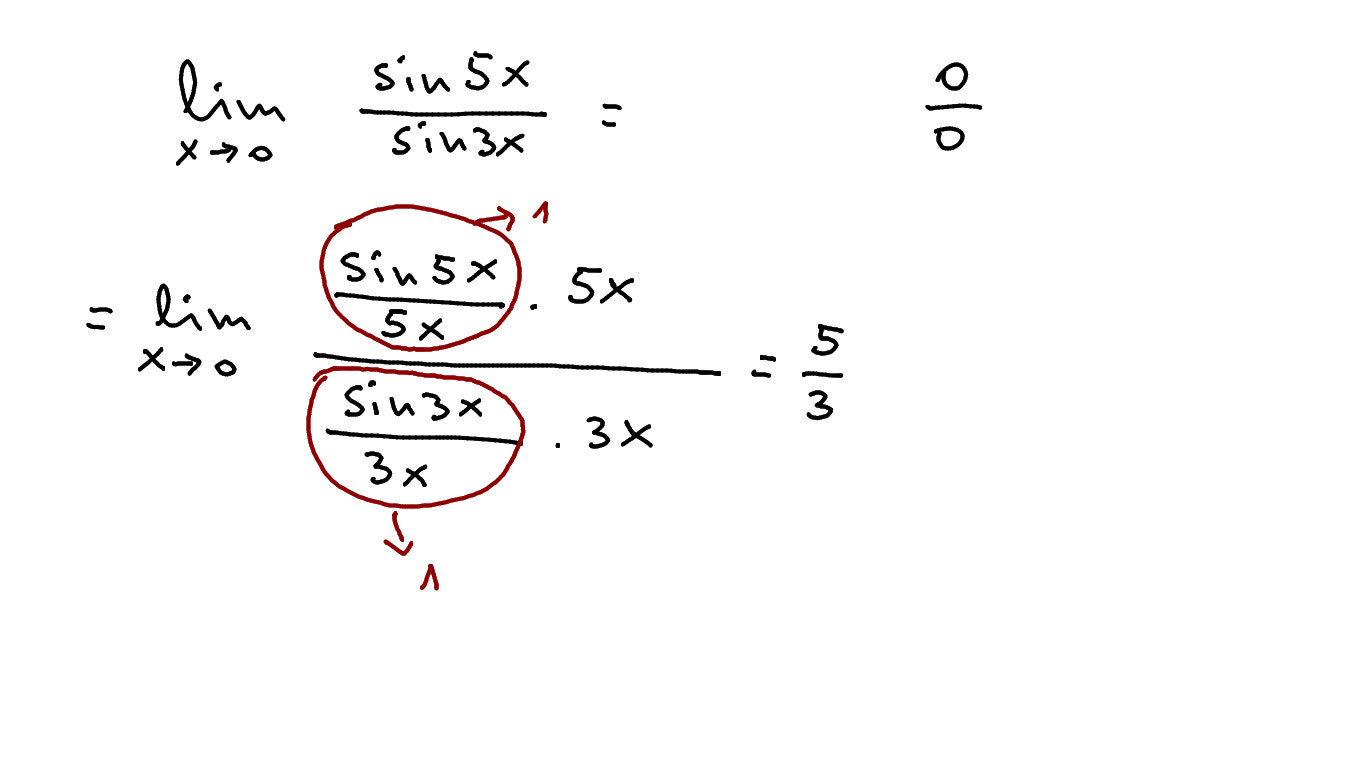 lim x→0 sin 5x / sin 3x = 0/0
→ 1
= lim x→0 (sin 5x / 5x . 5x) / (sin 3x / 3x . 3x) = 5/3
→ 1